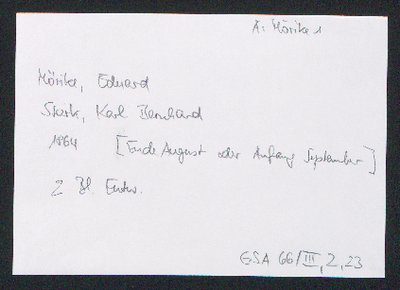 A: Mörike 1
Mörike, Eduard
Stark, Karl Bernhard
1864 [Ende August oder Anfang September]
2 Bl. Entw.
GSA 66/III, 2, 23